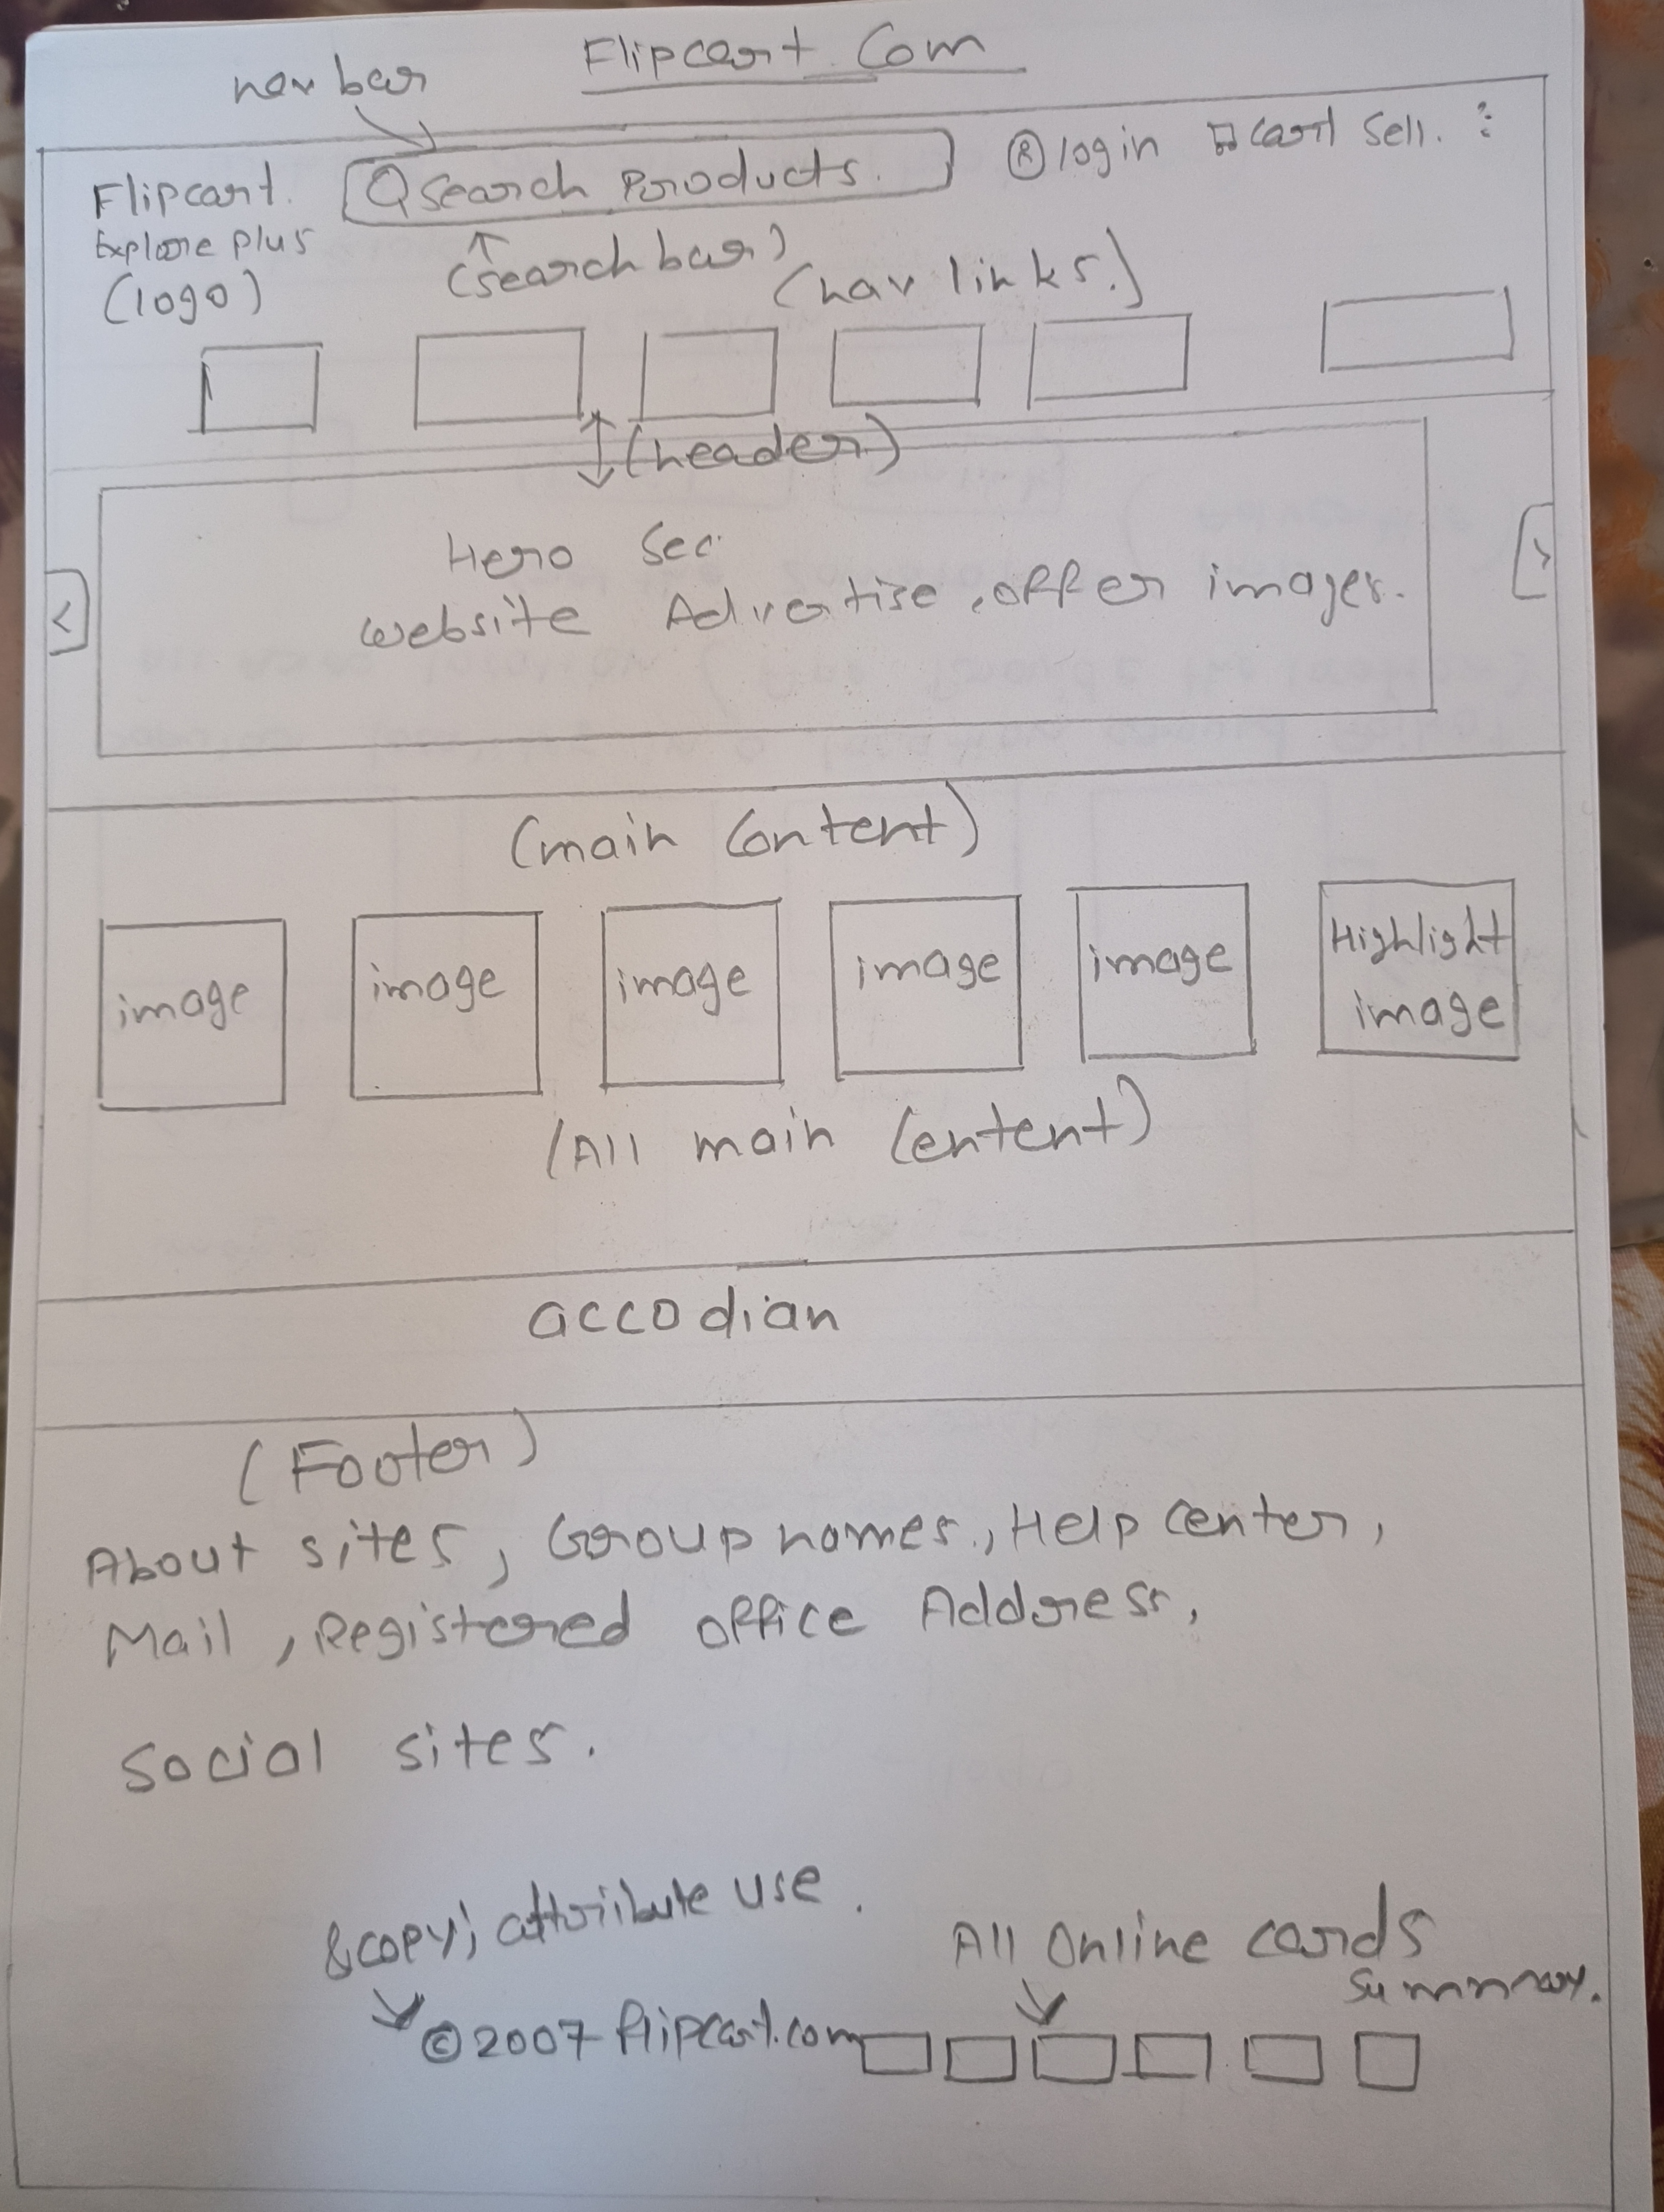 Flipcart.com
navbar
Flipcart. Search Products. login cart Sell.
Explore plus
(logo)
(search bar)
(nav links.)
(header)
Hero Sec.
< >
website Advertise, offer images.
(main Content)
image image image image image Highlight
image
(All main Centent)
accodian
(Footer)
About sites, Group names., Help center,
Mail, Registered office Address,
Social sites.
&copy; attriibute use.
All Online cards
summary.
©2007 flipcart.com